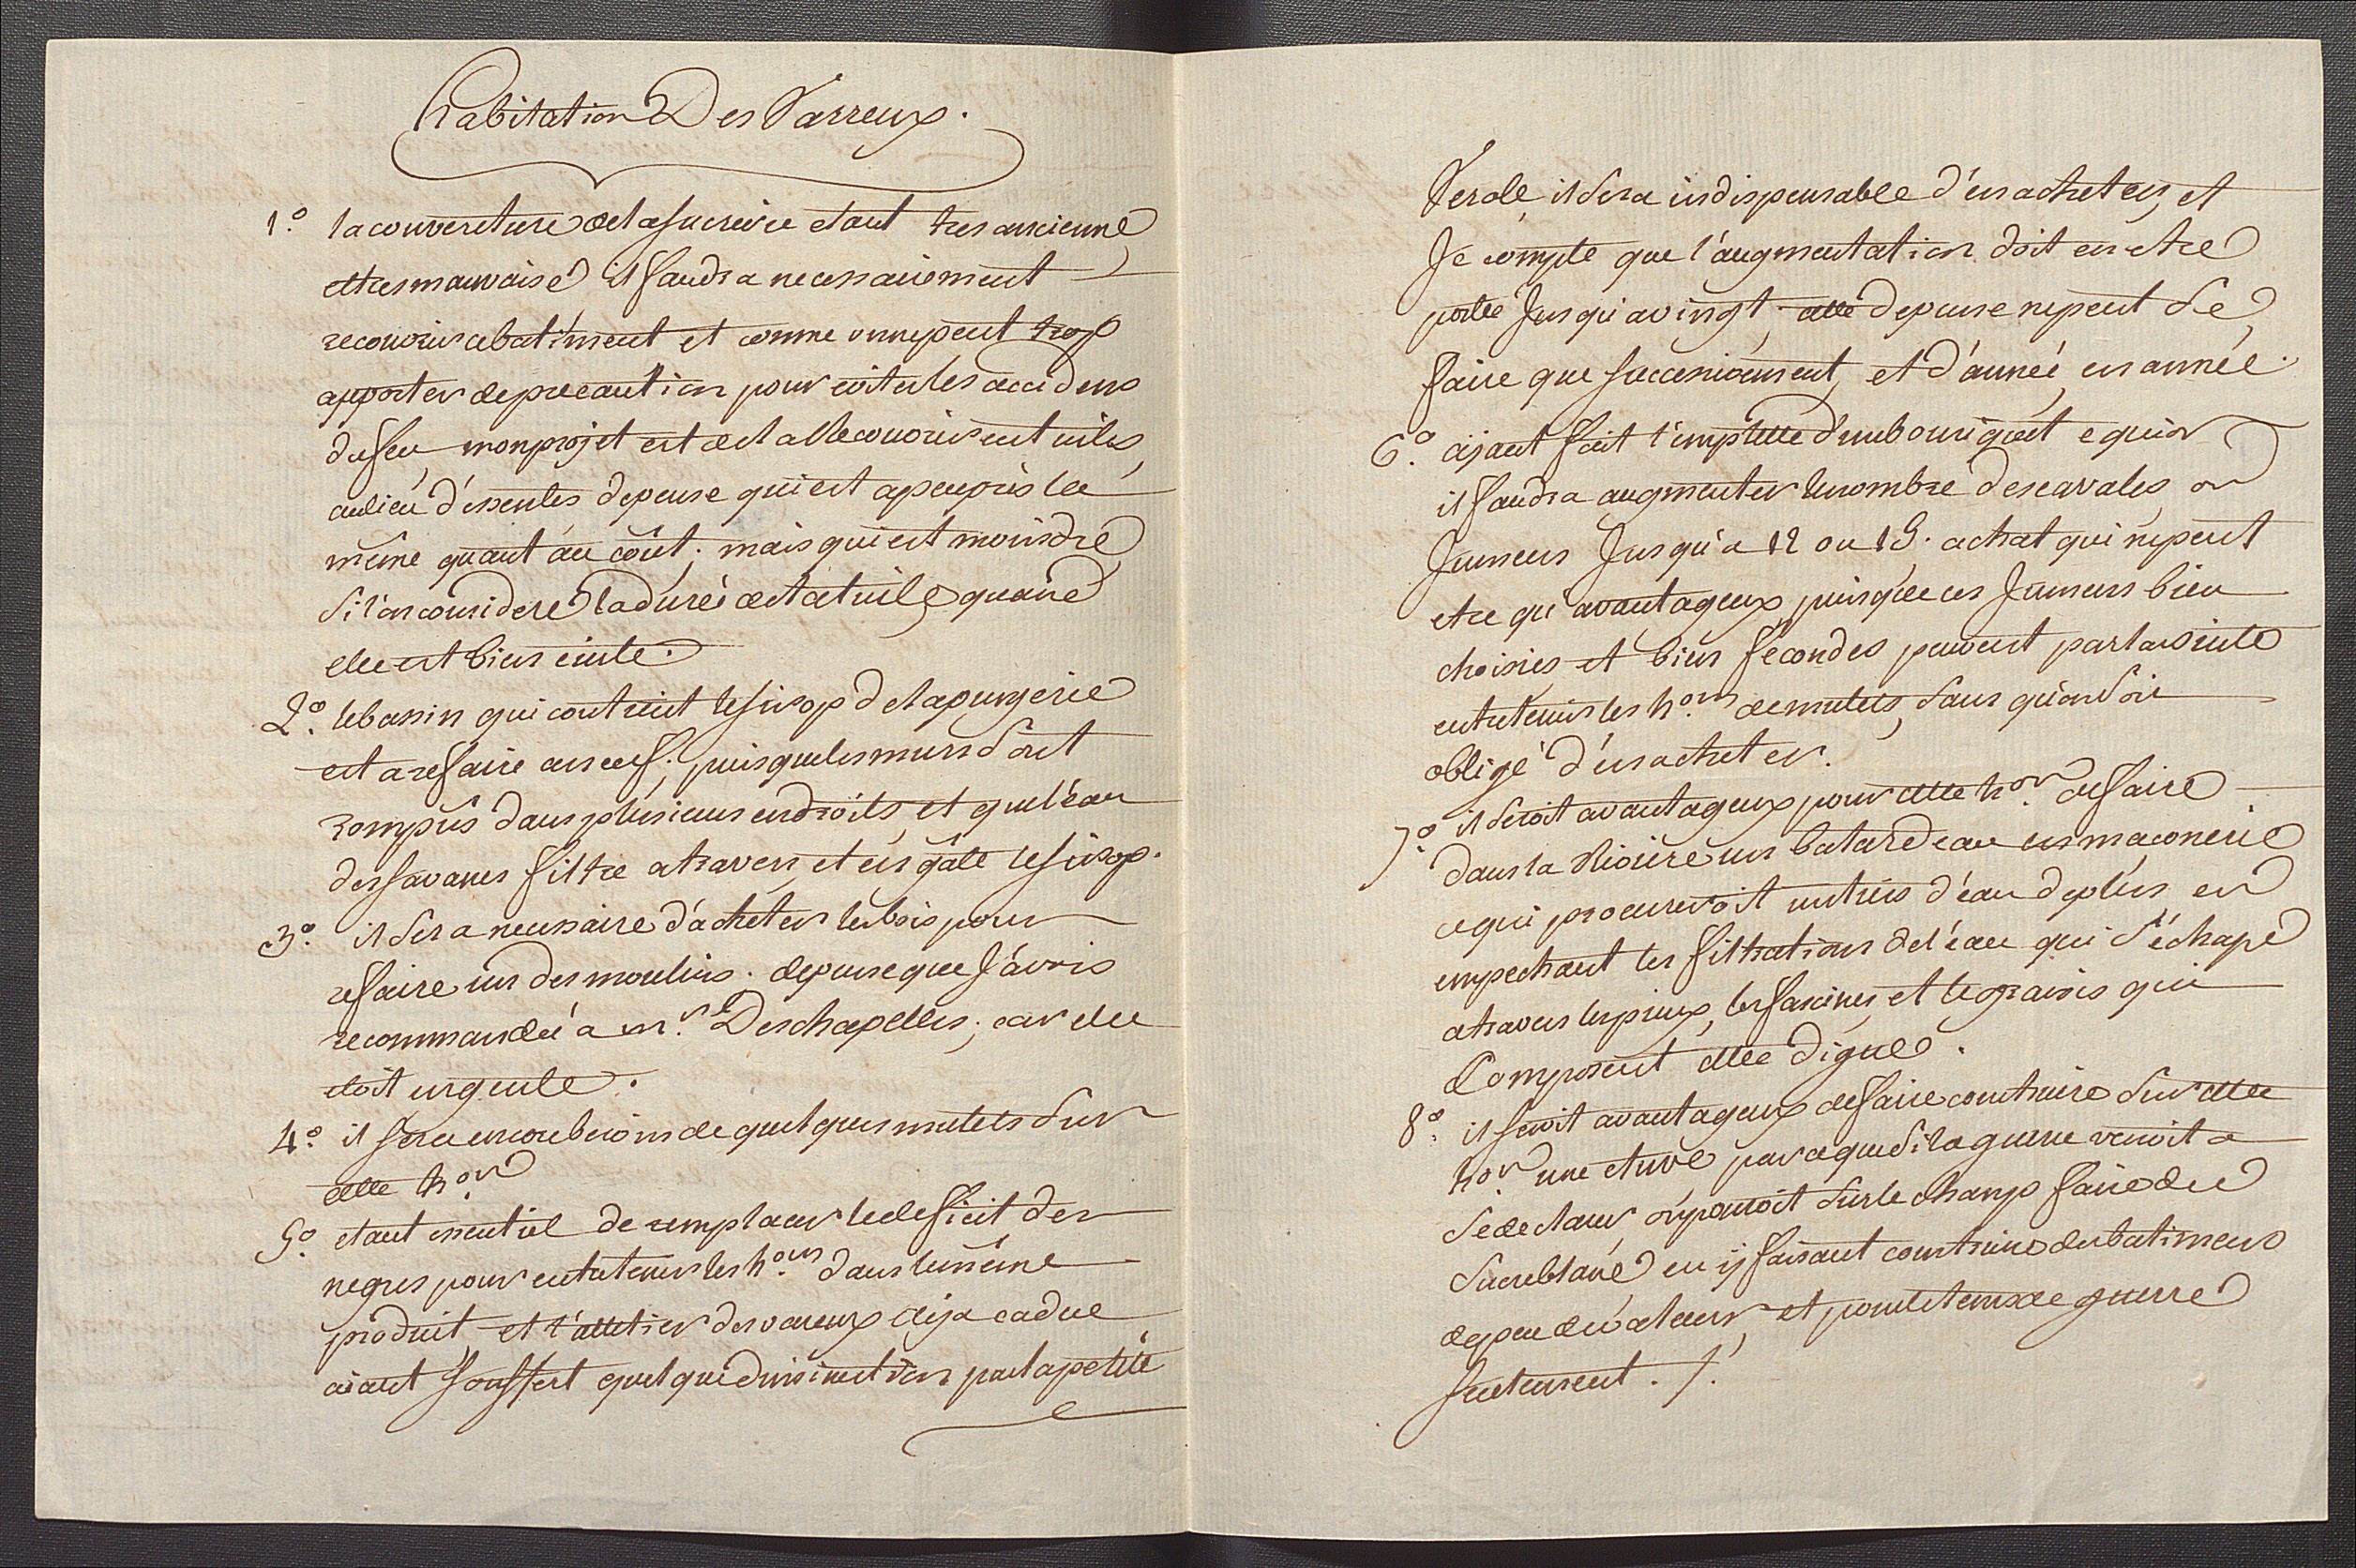 habitation Des Varreux.
1.º la couverture de la sucrerie etant tres ancienne
et tres mauvaise il faudra necessairement
recouvrir ce batiment et comme on ne peut trop
apporter de precaution pour eviter les accidens
du feu mon projet est de la recouvrir en tuiles
au lieu d'essentes depense qui est a peu près la
même quant au coût; mais qui est moindre
si l'on considere la durée de la tuile quand
elle est bien cuite.
2.º le bassin qui contient le sirop de la purgerie
est a refaire a neuf. puisque les murs sont
rompüs dans plusieurs endroits, et que l'eau
des savanes filtre a travers et en gâte le sirop.
3.º il sera necessaire d'acheter les bois pour
refaire un des moulins. depense que J'avois
recommandée a m.r Deschapelles; car elle
etoit urgente.
4.º il sera encore besoin de quelques mulets sur
cette h.on
5.º etant essentiel de remplacer le deficit des
negres pour entretenir les h.ons dans le même
produit et l'attelier des vareux deja caduc
aiant souffert quelque diminution par la petite
Verole, il sera indispensable d'en acheter, et
Je compte que l'augmentation doit en etre
portée Jusqu'a vingt, cette depense ne peut se
faire que successivement, et d'année en année.
6.º aÿant fait l'emplette d'un bouriquet
il faudra augmenter le nombre des cavales ou
Jumens Jusqu'a 12 ou 15. achat qui ne peut
etre qu'avantageux puisque ces Jumens bien
choisies et bien fécondes peuvent par la suite
entretenir les h.ons de mulets, sans qu'on soit
obligé d'en acheter.
7.º il seroit avantageux pour cette h.on de faire
dans la Riviere un batardeau en maçonerie
ce qui procureroit un tiers d'eau de plus, en
empechant les filtrations de l'eau qui s'échape
a travers les pieux, les fascines, et le gravois qui
Composent cette digue.
8.º il seroit avantageux de faire construire sur cette
h.on une etuve parce que si la guerre venoit a
se declarer, on pouroit sur le champ faire du
sucre blanc en ÿ faisant construire des batimens
de peu de valeur, et pour le tems de guerre
seulement. /.